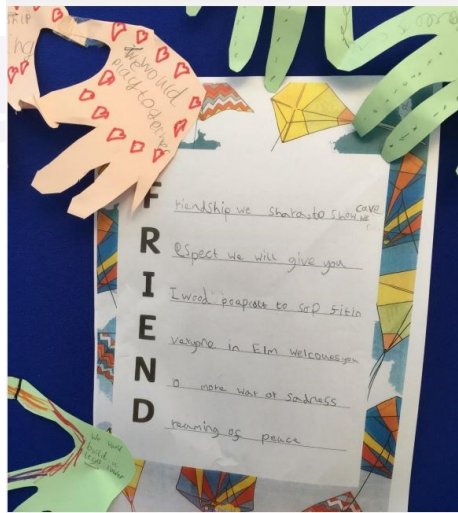 We would
play together
F riendship we share, to show we care
R espect we will give you
I wood peapolt to sop fitin
E veryone in Elm welcomes you
N o more war or sadness
D reaming of peace
We would
build a